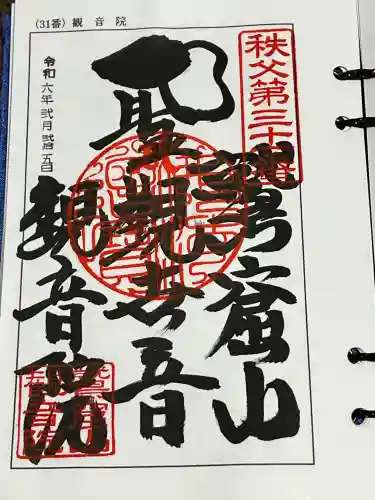 (31番) 観音院
秩父第三十一番
鷲窟山
聖觀世音
観音院
令和六年弐月弐拾五日